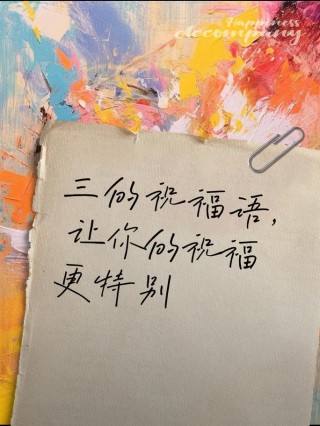 Happiness
accompany
三的祝福语,
让你的祝福
更特别